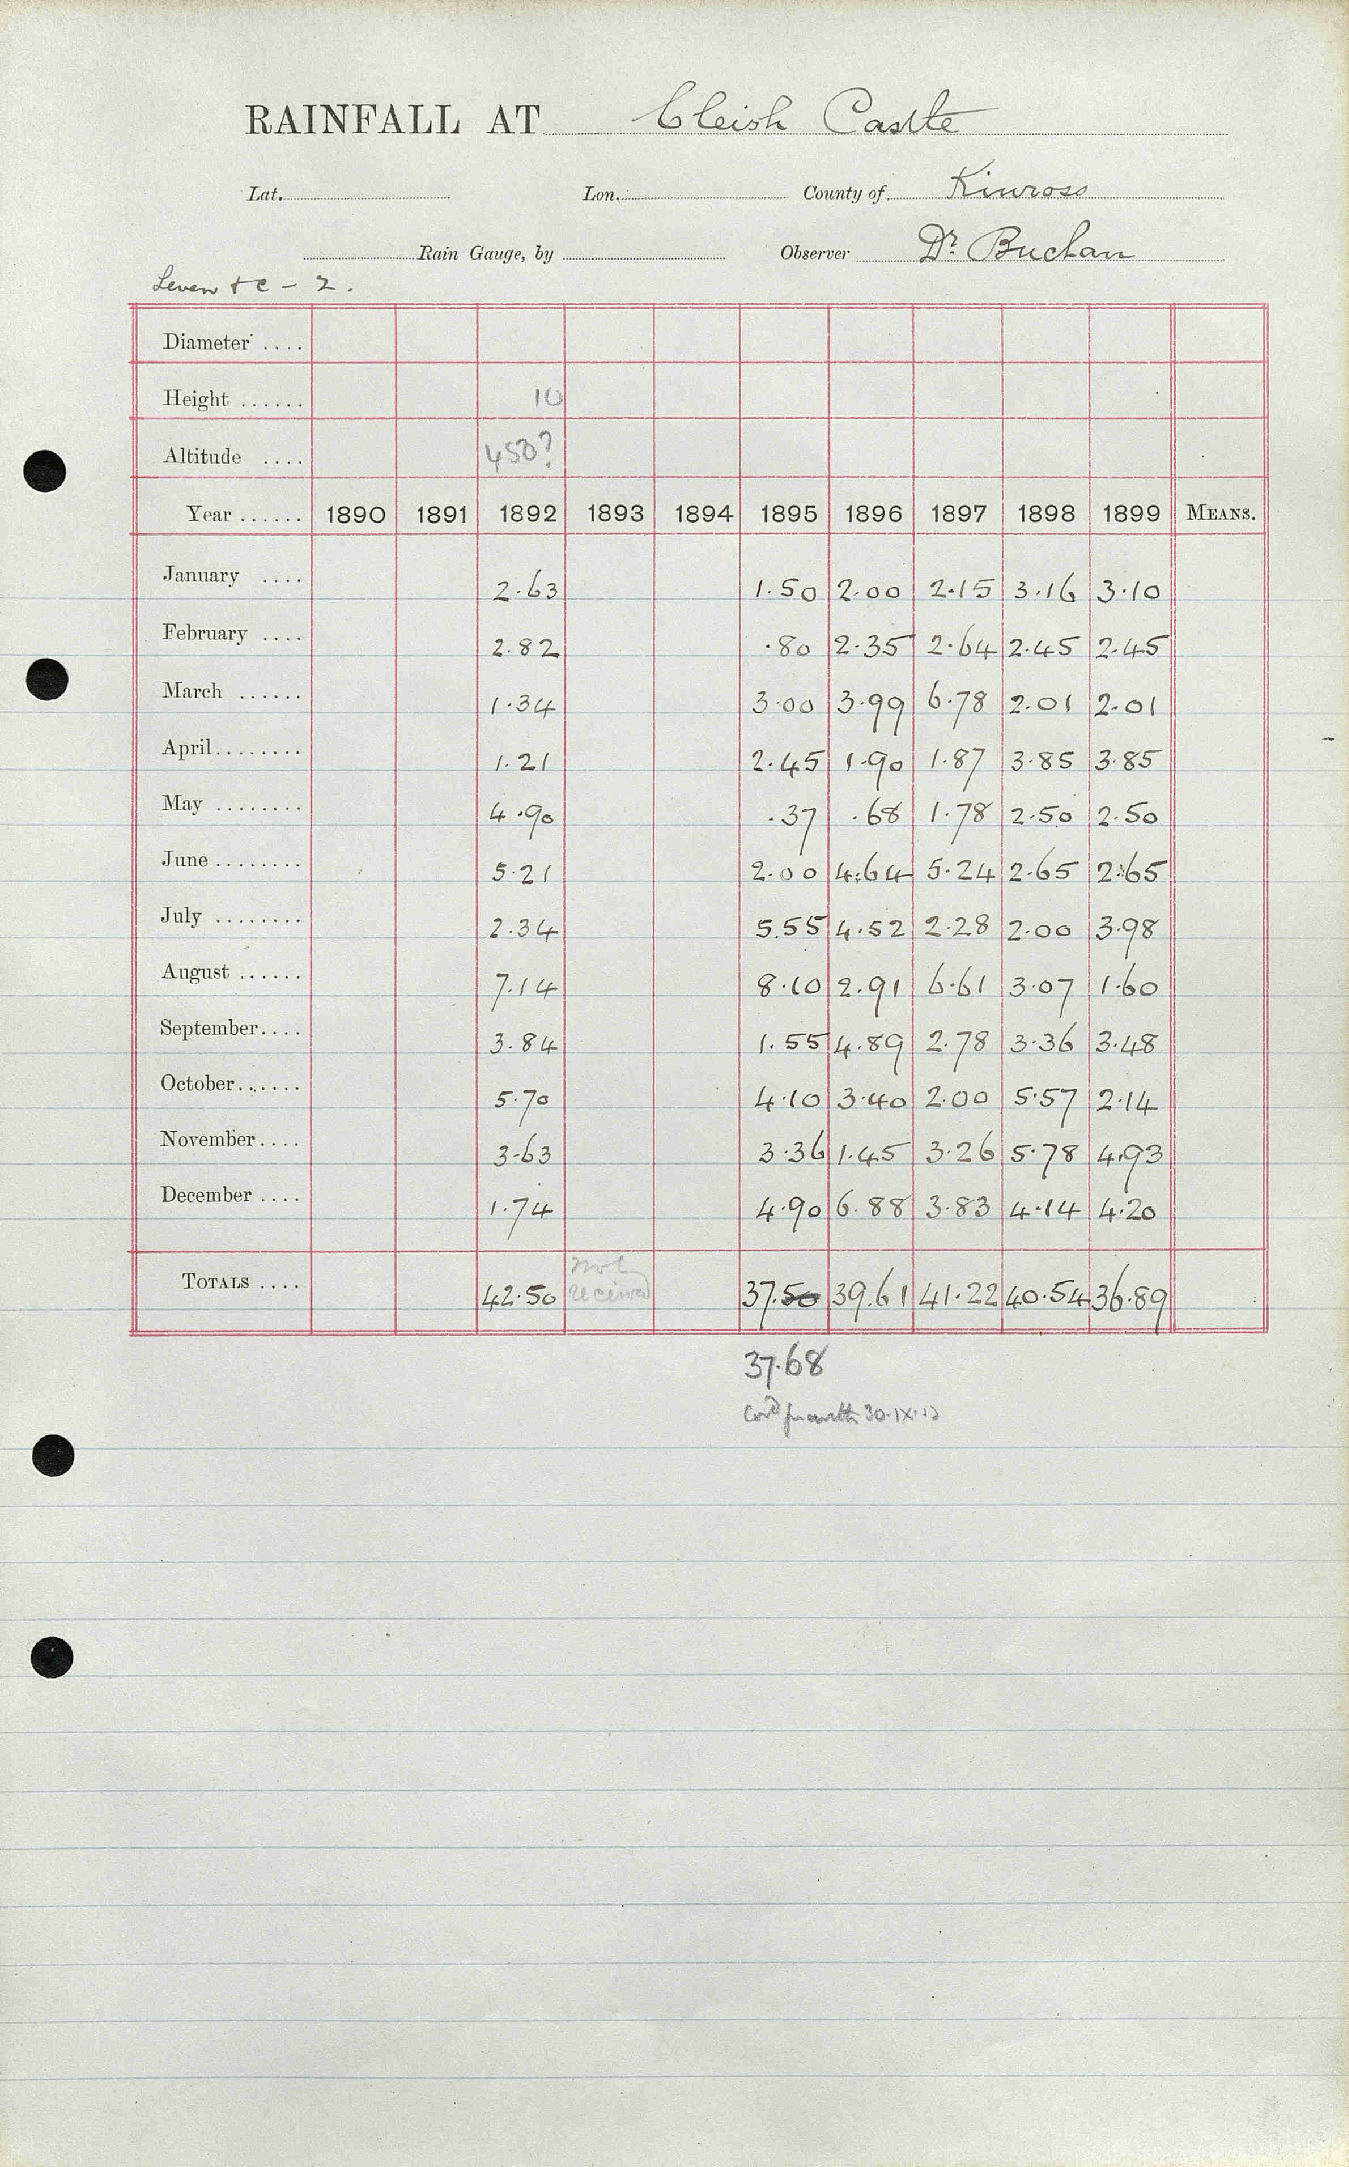 RAINFALL AT Cleish Castle
Lat. Lon. County of Kinross
Rain Gauge, by Observer Dr. Buchan
Leven & C - 2.
Diameter ....
Height ...... 10
Altitude .... 450?
Year ...... 1890 1891 1892 1893 1894 1895 1896 1897 1898 1899 MEANS.
January .... 2.63 1.50 2.00 2.15 3.16 3.10
February .... 2.82 .80 2.35 2.64 2.45 2.45
March ...... 1.34 3.00 3.99 6.78 2.01 2.01
April........ 1.21 2.45 1.90 1.87 3.85 3.85
May ........ 4.90 .37 .68 1.78 2.50 2.50
June ........ 5.21 2.00 4.64 5.24 2.65 2.65
July ........ 2.34 5.55 4.52 2.28 2.00 3.98
August ...... 7.14 8.10 2.91 6.61 3.07 1.60
September.... 3.84 1.55 4.89 2.78 3.36 3.48
October....... 5.70 4.10 3.40 2.00 5.57 2.14
November.... 3.63 3.36 1.45 3.26 5.78 4.93
December .... 1.74 4.90 6.88 3.83 4.14 4.20
TOTALS .... 42.50 Not received 37.50 39.61 41.22 40.54 36.89
37.68
30.IX.12